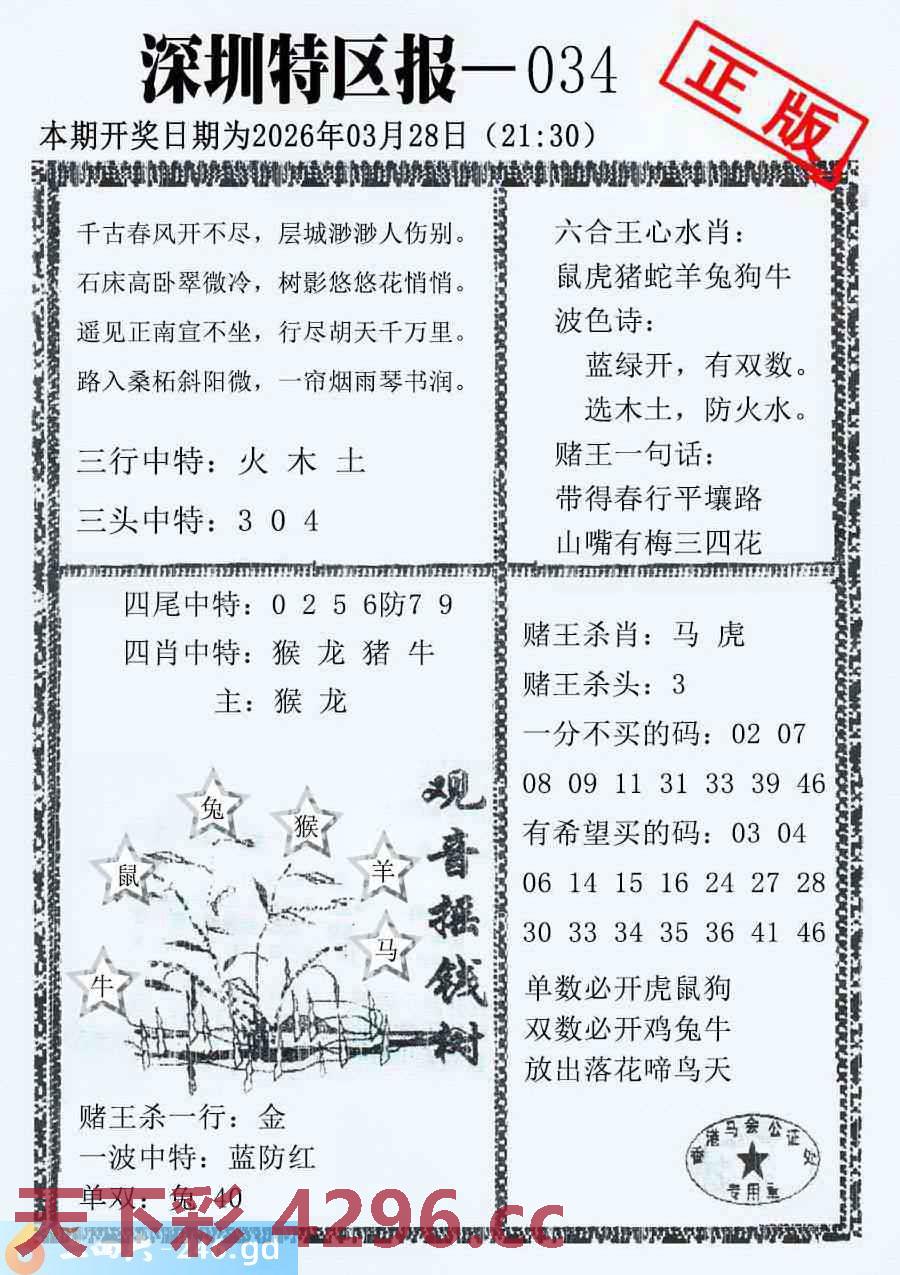 深圳特区报—034
正版
本期开奖日期为2026年03月28日（21:30）
千古春风开不尽，层城渺渺人伤别。
石床高卧翠微冷，树影悠悠花悄悄。
遥见正南宣不坐，行尽胡天千万里。
路入桑柘斜阳微，一帘烟雨琴书润。
三行中特：火 木 土
三头中特：3 0 4
六合王心水肖：
鼠虎猪蛇羊兔狗牛
波色诗：
蓝绿开，有双数。
选木土，防火水。
赌王一句话：
带得春行平壤路
山嘴有梅三四花
四尾中特：0 2 5 6防7 9
四肖中特：猴 龙 猪 牛
主：猴 龙
兔
猴
鼠
羊
马
牛
观音摇钱树
赌王杀一行：金
一波中特：蓝防红
单双：兔 40
赌王杀肖：马 虎
赌王杀头：3
一分不买的码：02 07
08 09 11 31 33 39 46
有希望买的码：03 04
06 14 15 16 24 27 28
30 33 34 35 36 41 46
单数必开虎鼠狗
双数必开鸡兔牛
放出落花啼鸟天
香港马会公证处
专用章
天下彩 4296.cc